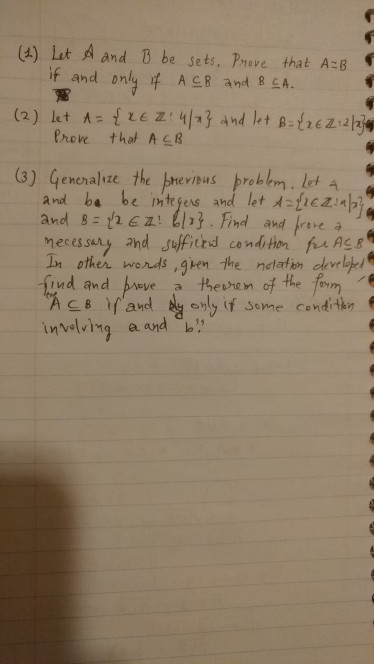 (1) Let A and B be sets. Prove that A=B
if and only if A ⊆ B and B ⊆ A.
(2) let A = { x ∈ ℤ : 4|x} and let B = {x ∈ ℤ : 2|x}
Prove that A ⊆ B
(3) Generalize the previous problem. Let a
and b be integers and let A = {x ∈ ℤ : a|x}
and B = {x ∈ ℤ : b|x}. Find and prove a
necessary and sufficient condition for A ⊆ B
In other words, given the notation developed
find and prove a theorem of the form
"A ⊆ B if and only if some condition
involving a and b".